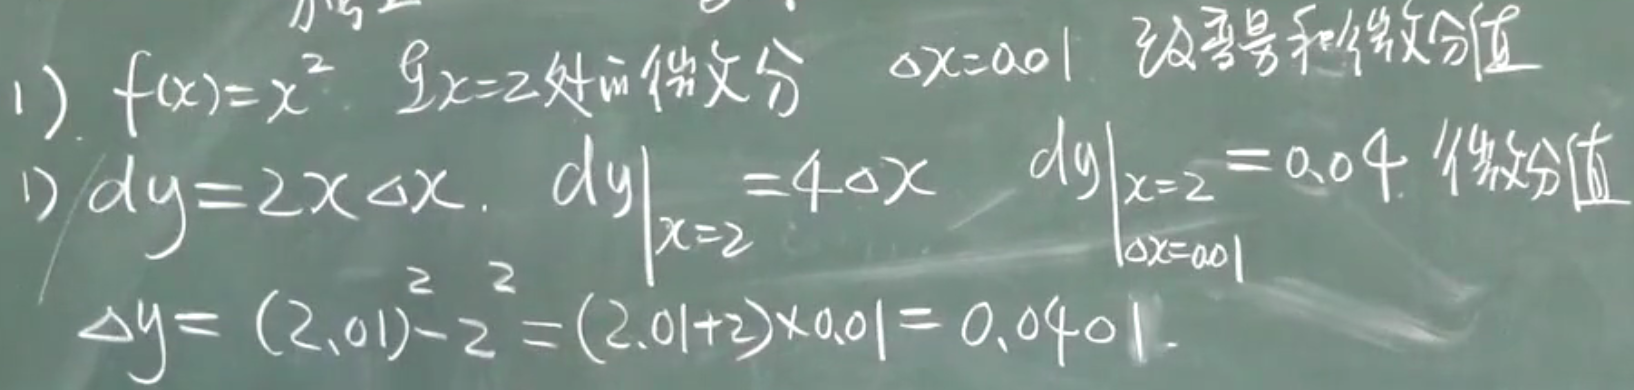 1). f(x)=x². 见x=2处的微分 Δx=0.01 改变量和微分值
1) dy=2xΔx. dy|x=2 =4Δx dy|x=2 Δx=0.01 =0.04. 微分值
Δy=(2.01)²-2²=(2.01+2)×0.01=0.0401.